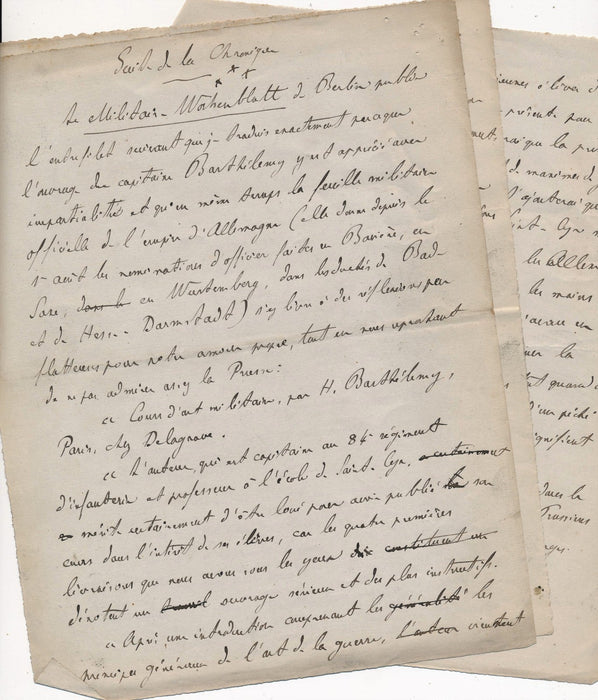 Suite de la Chronique
* * *
Le Militair-Wochenblatt de Berlin publie
l'entrefilet suivant que je traduis exactement parceque
l'ouvrage du capitaine Barthélemy y est apprécié avec
impartialité et qu'en même temps la feuille militaire
officielle de l'empire d'Allemagne (elle donne depuis le
1er août les nominations d'officier faites en Bavière, en
Saxe, dans le en Wurtemberg, dans les duchés de Bade
et de Hesse-Darmstadt) s'y livre à des réflexions peu
flatteuses pour notre amour propre, tout en nous reprochant
de ne pas admirer assez la Prusse:
" Cours d'art militaire, par H. Barthélemy,
Paris, chez Delagrave.
" L'auteur, qui est capitaine au 84e régiment
d'infanterie et professeur à l'école de Saint-Cyr, a certainement
mérite certainement d'être loué pour avoir publié son
cours dans l'intérêt de ses élèves, car les quatre premières
livraisons que nous avons sous les yeux constituent un
dénotent un travail ouvrage sérieux et des plus instructifs.
" Après une introduction comprenant les généralités les
principes généraux de l'art de la guerre, L'auteur viennent
élèves d
présente pour
que la pre
de manières d
J'ajouterai que
Saint-Cyr
les Allem
les mains
en
la
quand
d'un péché
signifient
dans la
Prussiens